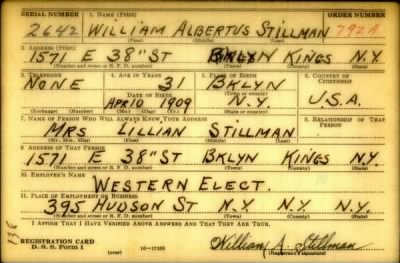 SERIAL NUMBER 1. NAME (Print) ORDER NUMBER
2642 WILLIAM ALBERTUS STILLMAN 792A
(First) (Middle) (Last)
2. ADDRESS (Print)
1571 E 38" ST BKLYN KINGS N.Y.
(Number and street or R. F. D. number) (Town) (County) (State)
3. TELEPHONE 4. AGE IN YEARS 5. PLACE OF BIRTH 6. COUNTRY OF CITIZENSHIP
NONE 31 BKLYN
DATE OF BIRTH (Town or county)
APR 10 1909 N.Y. U.S.A.
(Exchange) (Number) (Mo.) (Day) (Yr.) (State or country)
7. NAME OF PERSON WHO WILL ALWAYS KNOW YOUR ADDRESS 8. RELATIONSHIP OF THAT PERSON
MRS LILLIAN STILLMAN
(Mr., Mrs., Miss) (First) (Middle) (Last)
9. ADDRESS OF THAT PERSON
1571 E 38" ST BKLYN KINGS N.Y.
(Number and street or R. F. D. number) (Town) (County) (State)
10. EMPLOYER'S NAME
WESTERN ELECT.
11. PLACE OF EMPLOYMENT OR BUSINESS
395 HUDSON ST N.Y. N.Y. N.Y.
(Number and street or R. F. D. number) (Town) (County) (State)
I AFFIRM THAT I HAVE VERIFIED ABOVE ANSWERS AND THAT THEY ARE TRUE.
REGISTRATION CARD
D. S. S. Form 1 (over) 16-17105 William A. Stillman
(Registrant's signature)